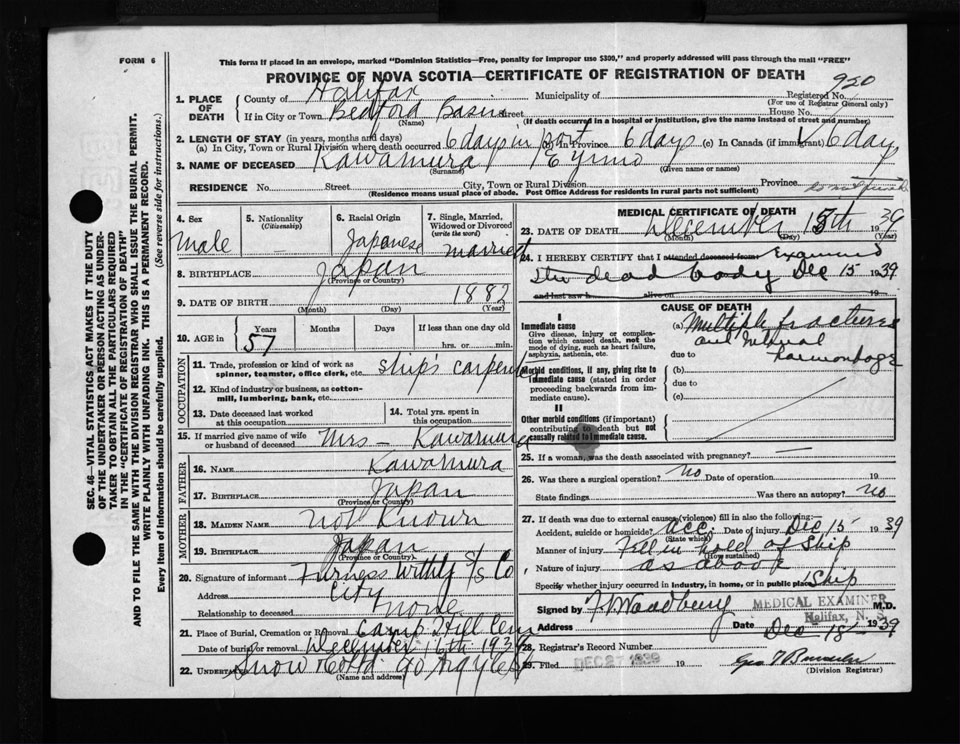 FORM 6
This form if placed in an envelope, marked "Dominion Statistics—Free, penalty for improper use $300," and properly addressed will pass through the mail "FREE"
PROVINCE OF NOVA SCOTIA—CERTIFICATE OF REGISTRATION OF DEATH
920
1. PLACE OF DEATH
County of Halifax Municipality of Registered No.
(For use of Registrar General only)
If in City or Town Bedford Basin Street House No.
(Name) (If death occurred in a hospital or institution, give the name instead of street and number)
2. LENGTH OF STAY (in years, months and days)
(a) In City, Town or Rural Division where death occurred 6 days in port (b) In Province 6 days (c) In Canada (if immigrant) 6 days
3. NAME OF DECEASED Kawamura
(Surname) (Given name or names)
RESIDENCE No. Street City, Town or Rural Division Province
(Residence means usual place of abode. Post Office Address for residents in rural parts not sufficient)
4. Sex
Male
5. Nationality
(Citizenship)
6. Racial Origin
Japanese
7. Single, Married, Widowed or Divorced
(write the word)
married
8. BIRTHPLACE Japan
(Province or Country)
9. DATE OF BIRTH 1882
(Month) (Day) (Year)
10. AGE
Years Months Days If less than one day old
57 hrs. or min.
OCCUPATION
11. Trade, profession or kind of work as spinner, teamster, office clerk, etc. ship's carpenter
12. Kind of industry or business, as cotton-mill, lumbering, bank, etc.
13. Date deceased last worked at this occupation
14. Total yrs. spent in this occupation
15. If married give name of wife or husband of deceased Mrs – Kawamura
FATHER
16. NAME Kawamura
17. BIRTHPLACE Japan
(Province or Country)
MOTHER
18. MAIDEN NAME not known
19. BIRTHPLACE Japan
(Province or Country)
20. Signature of informant Furness Withy S/S Co
Address City
Relationship to deceased none
21. Place of Burial, Cremation or Removal Camp Hill Cem
Date of burial or removal December 16th 1939
22. Undertaker Snow & Co Ltd 90 Argyle St
(Name and address)
MEDICAL CERTIFICATE OF DEATH
23. DATE OF DEATH December 15th 1939
(Month) (Day) (Year)
24. I HEREBY CERTIFY that I attended deceased from Examined
the dead body Dec 15 1939
and last saw h alive on 19
CAUSE OF DEATH
I
Immediate cause
Give disease, injury or complication which caused death, not the mode of dying, such as heart failure, asphyxia, asthenia, etc.
(a) Multiple fractures
and internal
due to harmorrhage
Morbid conditions, if any, giving rise to immediate cause (stated in order proceeding backwards from immediate cause).
(b)
due to
(c)
II
Other morbid conditions (if important) contributing to death but not causally related to immediate cause.
25. If a woman, was the death associated with pregnancy? —
26. Was there a surgical operation? no Date of operation 19
State findings Was there an autopsy? no
27. If death was due to external causes (violence) fill in also the following:—
Accident, suicide or homicide? acc. Date of injury Dec 15 1939
(State which)
Manner of injury Fell in hold of Ship
(How sustained)
Nature of injury as above
Specify whether injury occurred in industry, in home, or in public place Ship
Signed by F V Woodbury MEDICAL EXAMINER M.D.
Halifax, N.
Address Date Dec 18 1939
28. Registrar's Record Number
29. Filed DEC 27 1939 19
(Division Registrar)
SEC. 46—VITAL STATISTICS ACT MAKES IT THE DUTY
OF THE UNDERTAKER OR PERSON ACTING AS UNDER-
TAKER TO OBTAIN ALL THE PARTICULARS REQUIRED
IN THE "CERTIFICATE OF REGISTRATION OF DEATH"
AND TO FILE THE SAME WITH THE DIVISION REGISTRAR WHO SHALL ISSUE THE BURIAL PERMIT.
WRITE PLAINLY WITH UNFADING INK. THIS IS A PERMANENT RECORD.
Every item of Information should be carefully supplied. (See reverse side for instructions.)